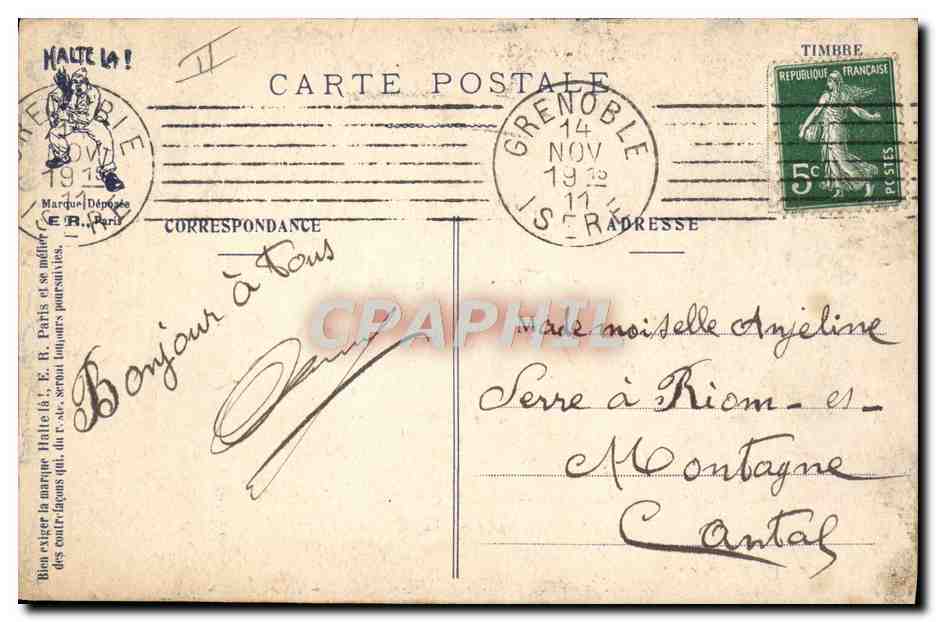 HALTE LA !
II
CARTE POSTALE
TIMBRE
REPUBLIQUE FRANÇAISE
5c
POSTES
GRENOBLE
14
NOV
19 15
11
ISERE
GRENOBLE
NOV
19 15
11
ISERE
Marque Déposée
E. R., Paris
CORRESPONDANCE
ADRESSE
Bonjour à tous
Mademoiselle Anjeline
Serre à Riom-es-
Montagne
Cantal
Bien exiger la marque Halte là !, E. R. Paris et se méfier
des contrefaçons qui, du reste, seront toujours poursuivies.
CPAPHIL